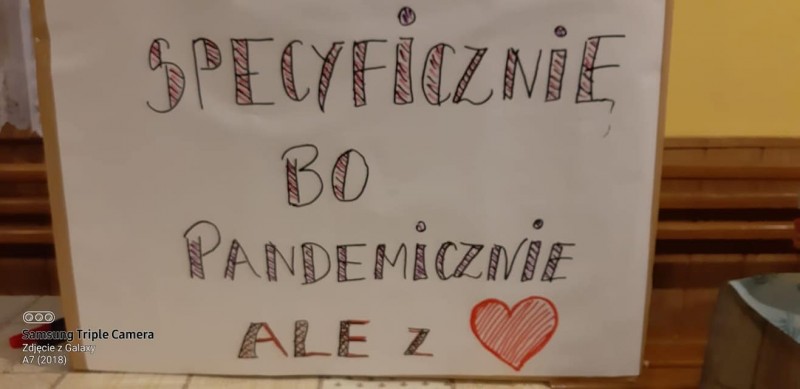 SPECYFICZNIĘ
BO
PANDEMICZNIE
ALE Z
Samsung Triple Camera
Zdjęcie z Galaxy
A7 (2018)